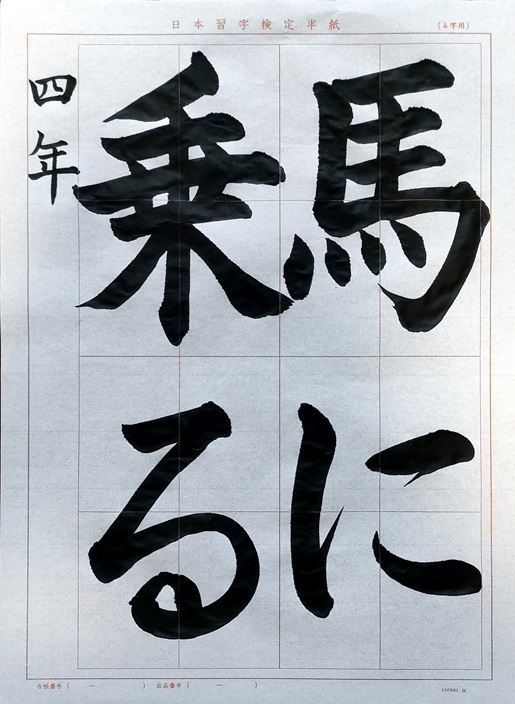 日本習字検定半紙
(4字用)
馬に
乗る
四年
台帳番号( ー ) 出品番号( ー )